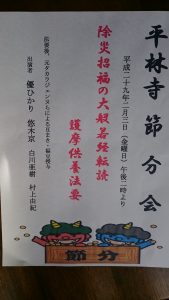 平林寺節分会
平成二十九年二月三日(金曜日)午後二時より
除災招福の大般若経転読
護摩供養法要
法要後、元タカラジェンヌらによる豆まき・福豆授与
出演者 優ひかり 悠木京 白川亜樹 村上由紀
節分